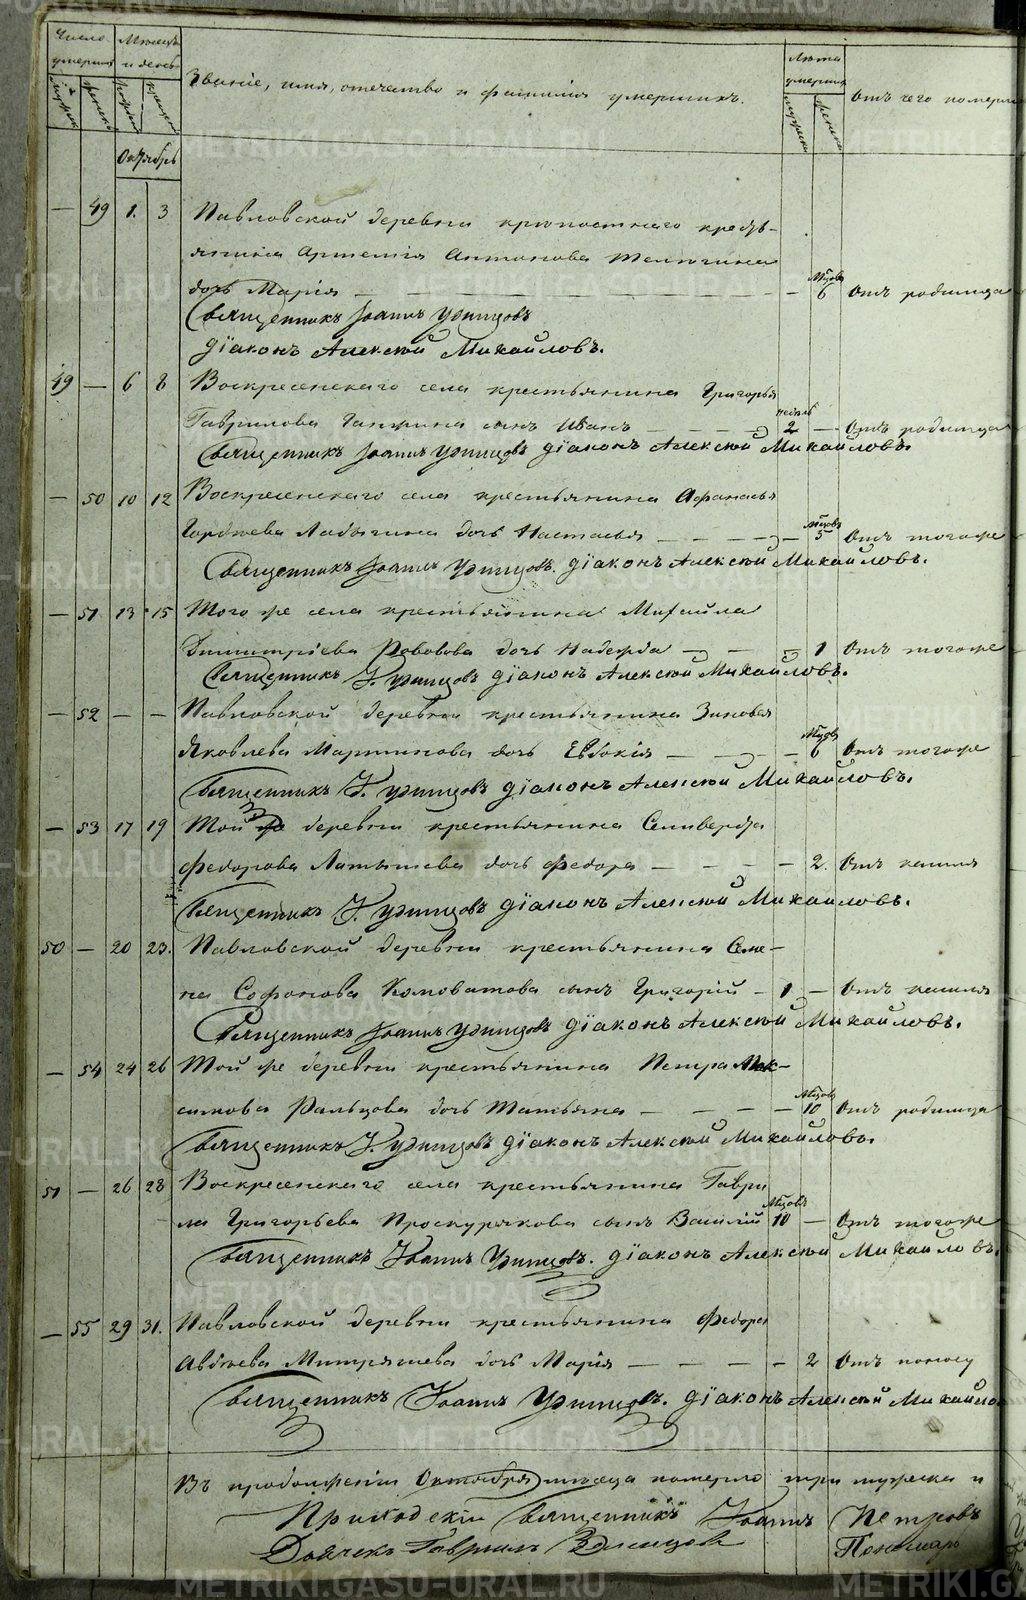 METRIKI.GASO-URAL.RU
Число умершихъ
Мѣсяцъ и день
Званіе, имя, отчество и фамилія умершихъ.
Лѣта умершихъ
Отъ чего померли
Октябрь
— 49 1. 3 Павловской деревни крѣпостнаго кресть-
янина Артемія Антонова
дочь Марія — — — Мѣсцовъ 6 Отъ родимца
Священникъ Іоаннъ
Діаконъ Алексѣй Михайловъ.
49 — 6 8 Воскресенскаго села крестьянина Григорья
Гаврилова сынъ Иванъ — — недѣль 2 — Отъ родимца
Священникъ Іоаннъ діаконъ Алексѣй Михайловъ.
— 50 10 12 Воскресенскаго села крестьянина Афанасья
Гордѣева Ладыгина дочь Настасья — — — Мѣсцовъ 5 Отъ тогоже
Священникъ Іоаннъ діаконъ Алексѣй Михайловъ.
— 51 13 15 Того же села крестьянина Михаила
Димитріева дочь Надежда — — — 1 Отъ тогоже
Священникъ І. діаконъ Алексѣй Михайловъ.
— 52 — — Павловской деревни крестьянина Зиновья
Яковлева Мартинова дочь Евдокія — — — Мѣсцовъ 6 Отъ тогоже
Священникъ І. діаконъ Алексѣй Михайловъ.
— 53 17 19 Той же деревни крестьянина Селиверста
Федорова Латышева дочь Федора — — — 2. Отъ кашля
Священникъ І. діаконъ Алексѣй Михайловъ.
50 — 20 23. Павловской деревни крестьянина Семе-
на Софонова сынъ Григорій — 1 — Отъ кашля
Священникъ Іоаннъ діаконъ Алексѣй Михайловъ.
— 54 24 26 Той же деревни крестьянина Петра Мак-
симова Ральцова дочь Татьяна — — — Мѣсцовъ 10 Отъ родимца
Священникъ І. діаконъ Алексѣй Михайловъ.
51 — 26 28 Воскресенскаго села крестьянина Гаври
ла Григорьева Проскурякова сынъ Василій Мѣсцовъ 10 — Отъ тогоже
Священникъ Іоаннъ діаконъ Алексѣй Михайловъ.
— 55 29 31. Павловской деревни крестьянина Федора
Авдѣева Митряшева дочь Марія — — — 2 Отъ поносу
Священникъ Іоаннъ діаконъ Алексѣй Михайло
Въ продолженіи Октября мѣсяца померло три мужеска и
Приходскій священникъ Іоаннъ Петровъ
Дьячекъ Гавріилъ Пономарь